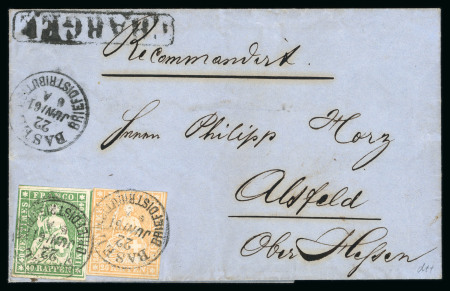 CHARGÉ
Recommandirt.
BASEL
22
JUNI 61
6 A
BRIEFDISTRIBUT
Herrn Philipp Horz
Alsfeld
Ober Hessen
FRANCO
BASEL
22
JUNI 61
BRIEFDISTRIBUT